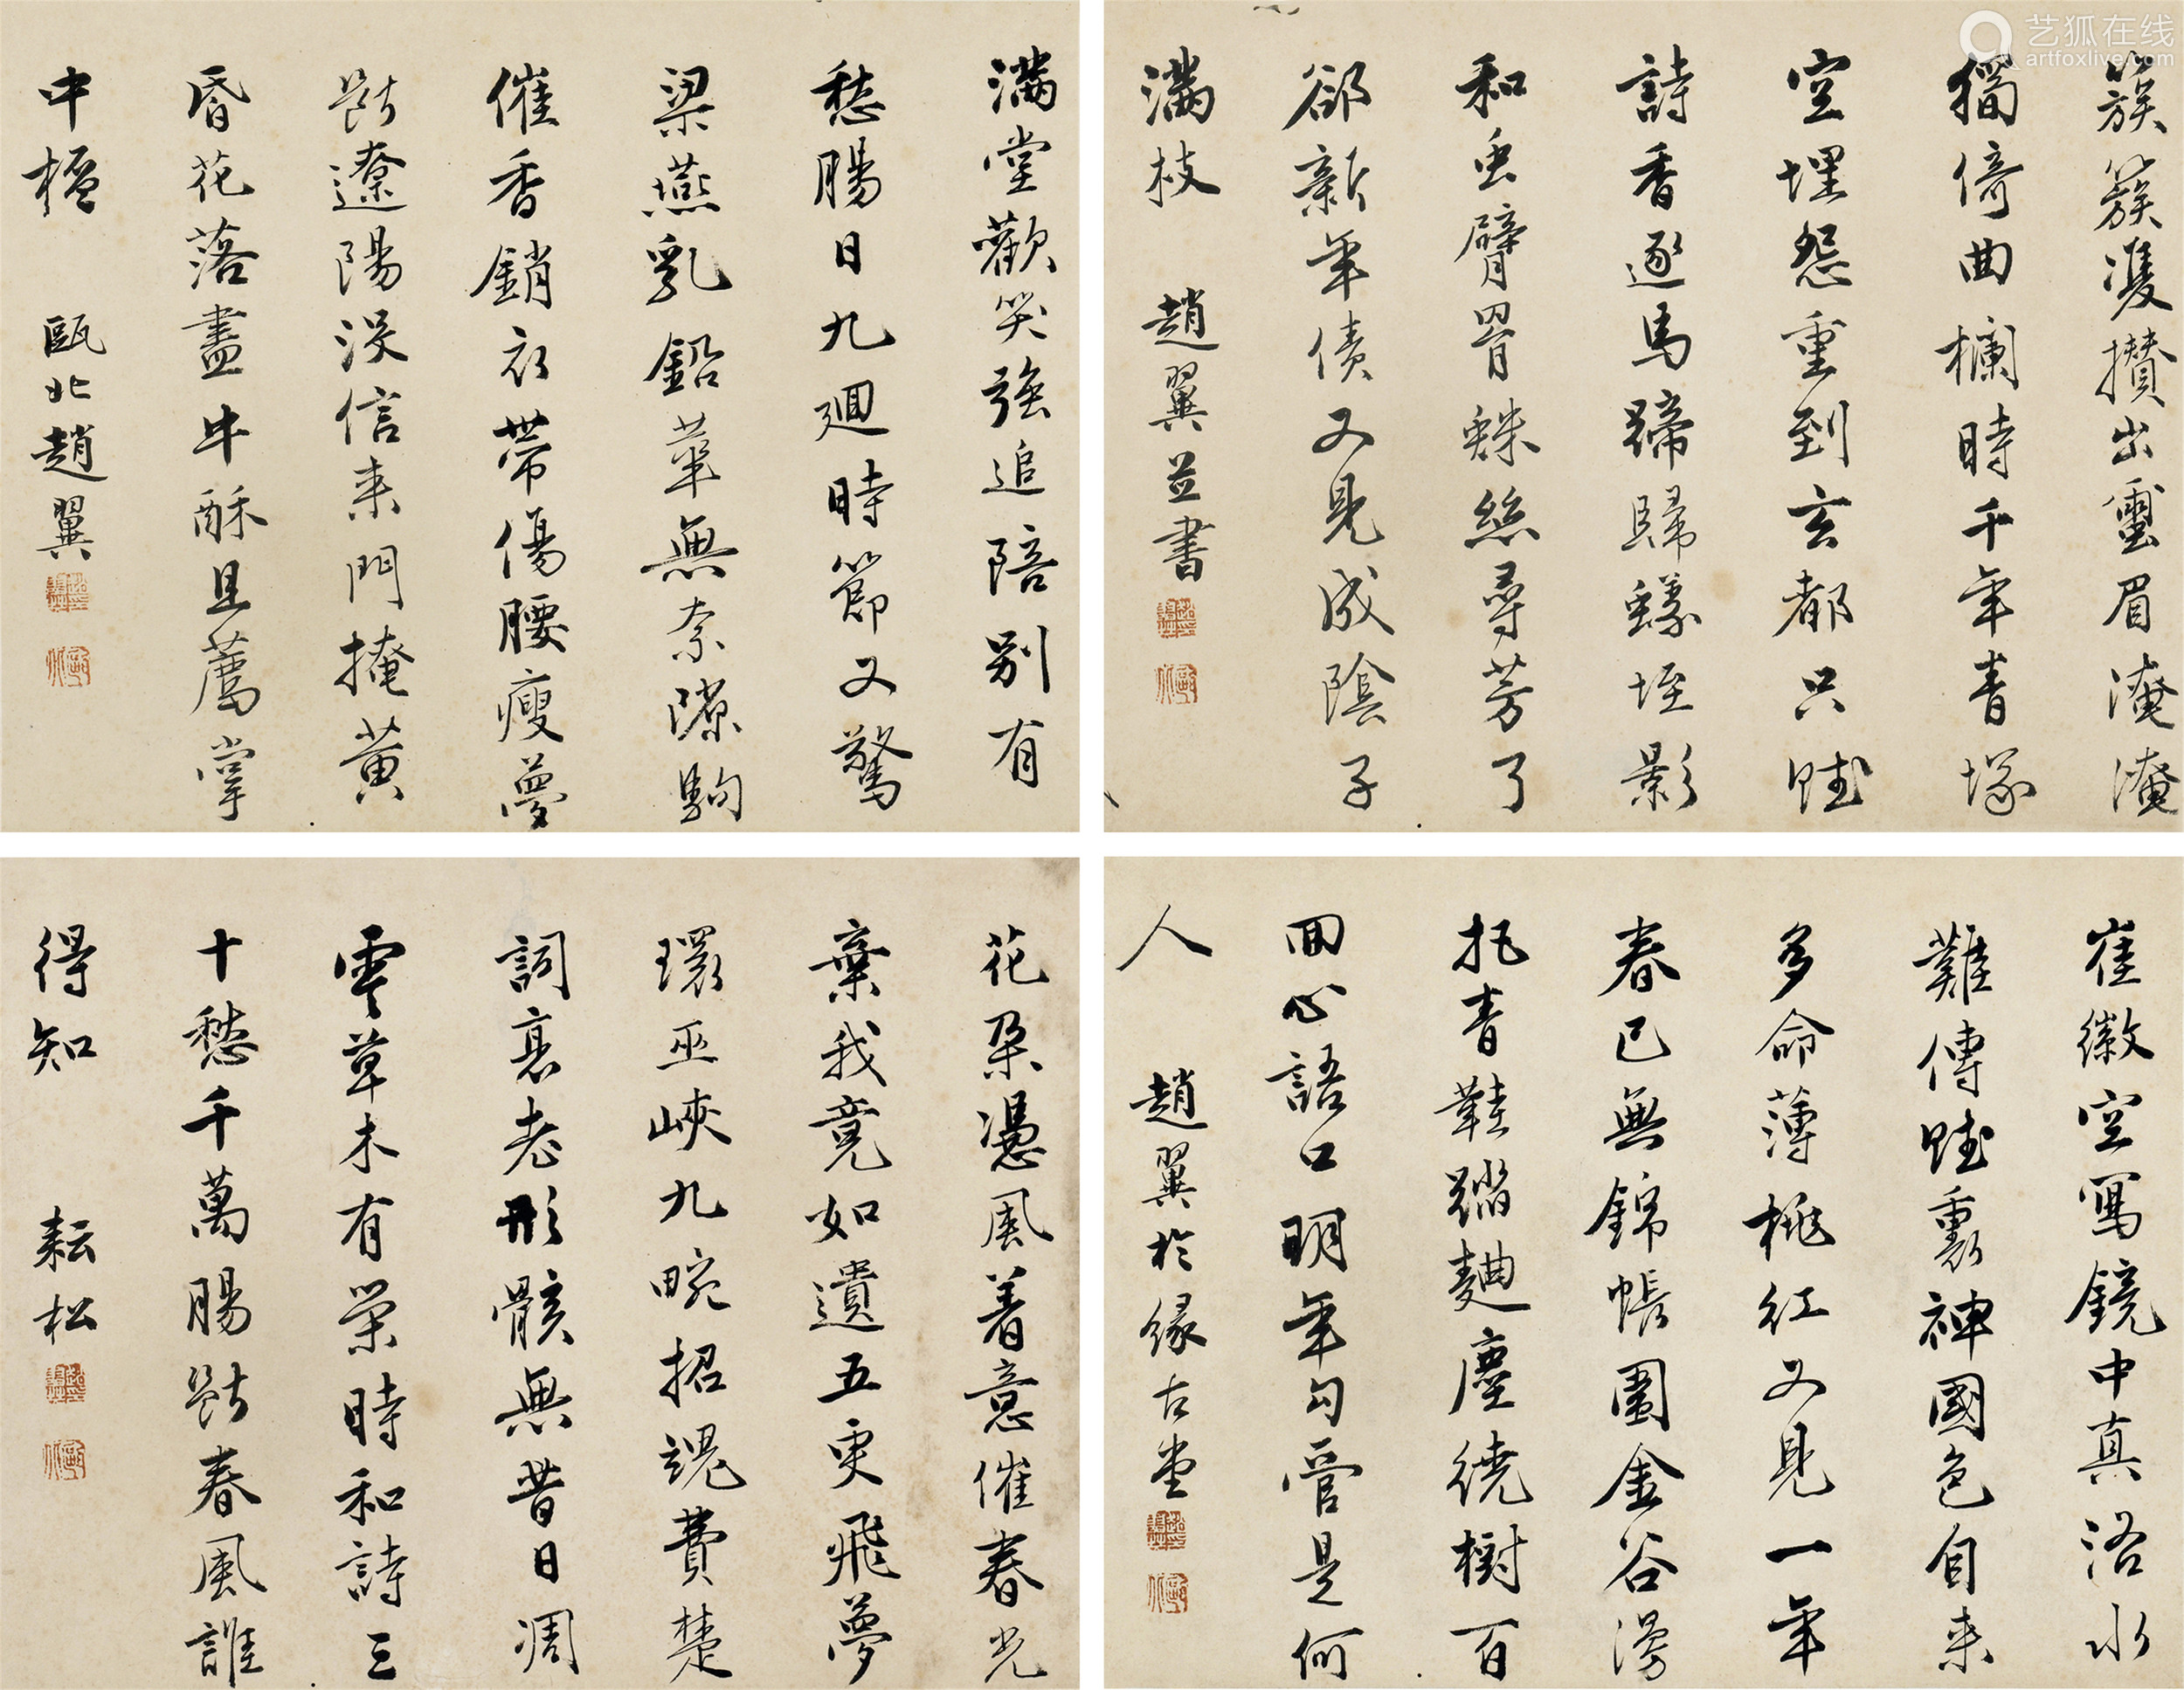 艺狐在线
artfoxlive.com
簇簇雙攢出璽眉淹淹
獨倚曲欄時千年青塚
空埋怨重到玄都只賦
詩香逐馬蹄歸蟻垤影
和虫臂罥蛛絲尋芳了
卻新年債又見成陰子
滿枝
趙翼並書
滿堂歡笑強追陪別有
愁腸日九迴時節又驚
梁燕乳鉛華無奈隙駒
催香銷衣帶傷腰瘦夢
斷遼陽沒信來門掩黃
昏花落盡牛酥且薦掌
中杯
甌北趙翼
崔徽空寫鏡中真洛水
難傳賦裏神國色自來
多命薄桃紅又見一年
春已無錦帳圍金谷漫
把青鞋踏麯塵繞樹百
回心語口明年勾管是何
人
趙翼於緣古堂
花朵憑風着意催春光
棄我竟如遺五更飛夢
環巫峽九畹招魂費楚
詞衰老形骸無昔日凋
零草木有榮時和詩三
十愁千萬腸斷春風誰
得知
耘松